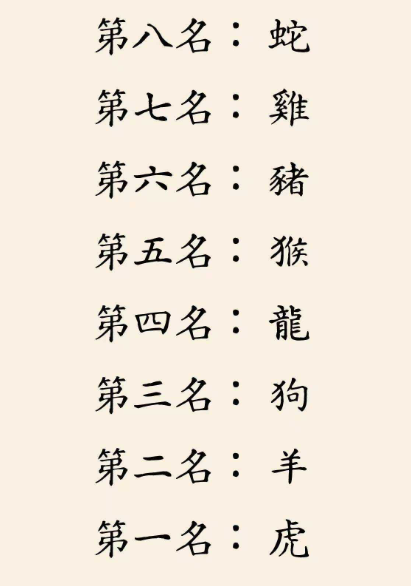 第八名：蛇
第七名：雞
第六名：豬
第五名：猴
第四名：龍
第三名：狗
第二名：羊
第一名：虎